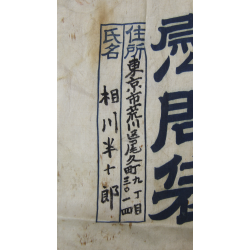 慰問袋
住所 東京市荒川区尾久町九丁目三〇一四
氏名 相川半十郎